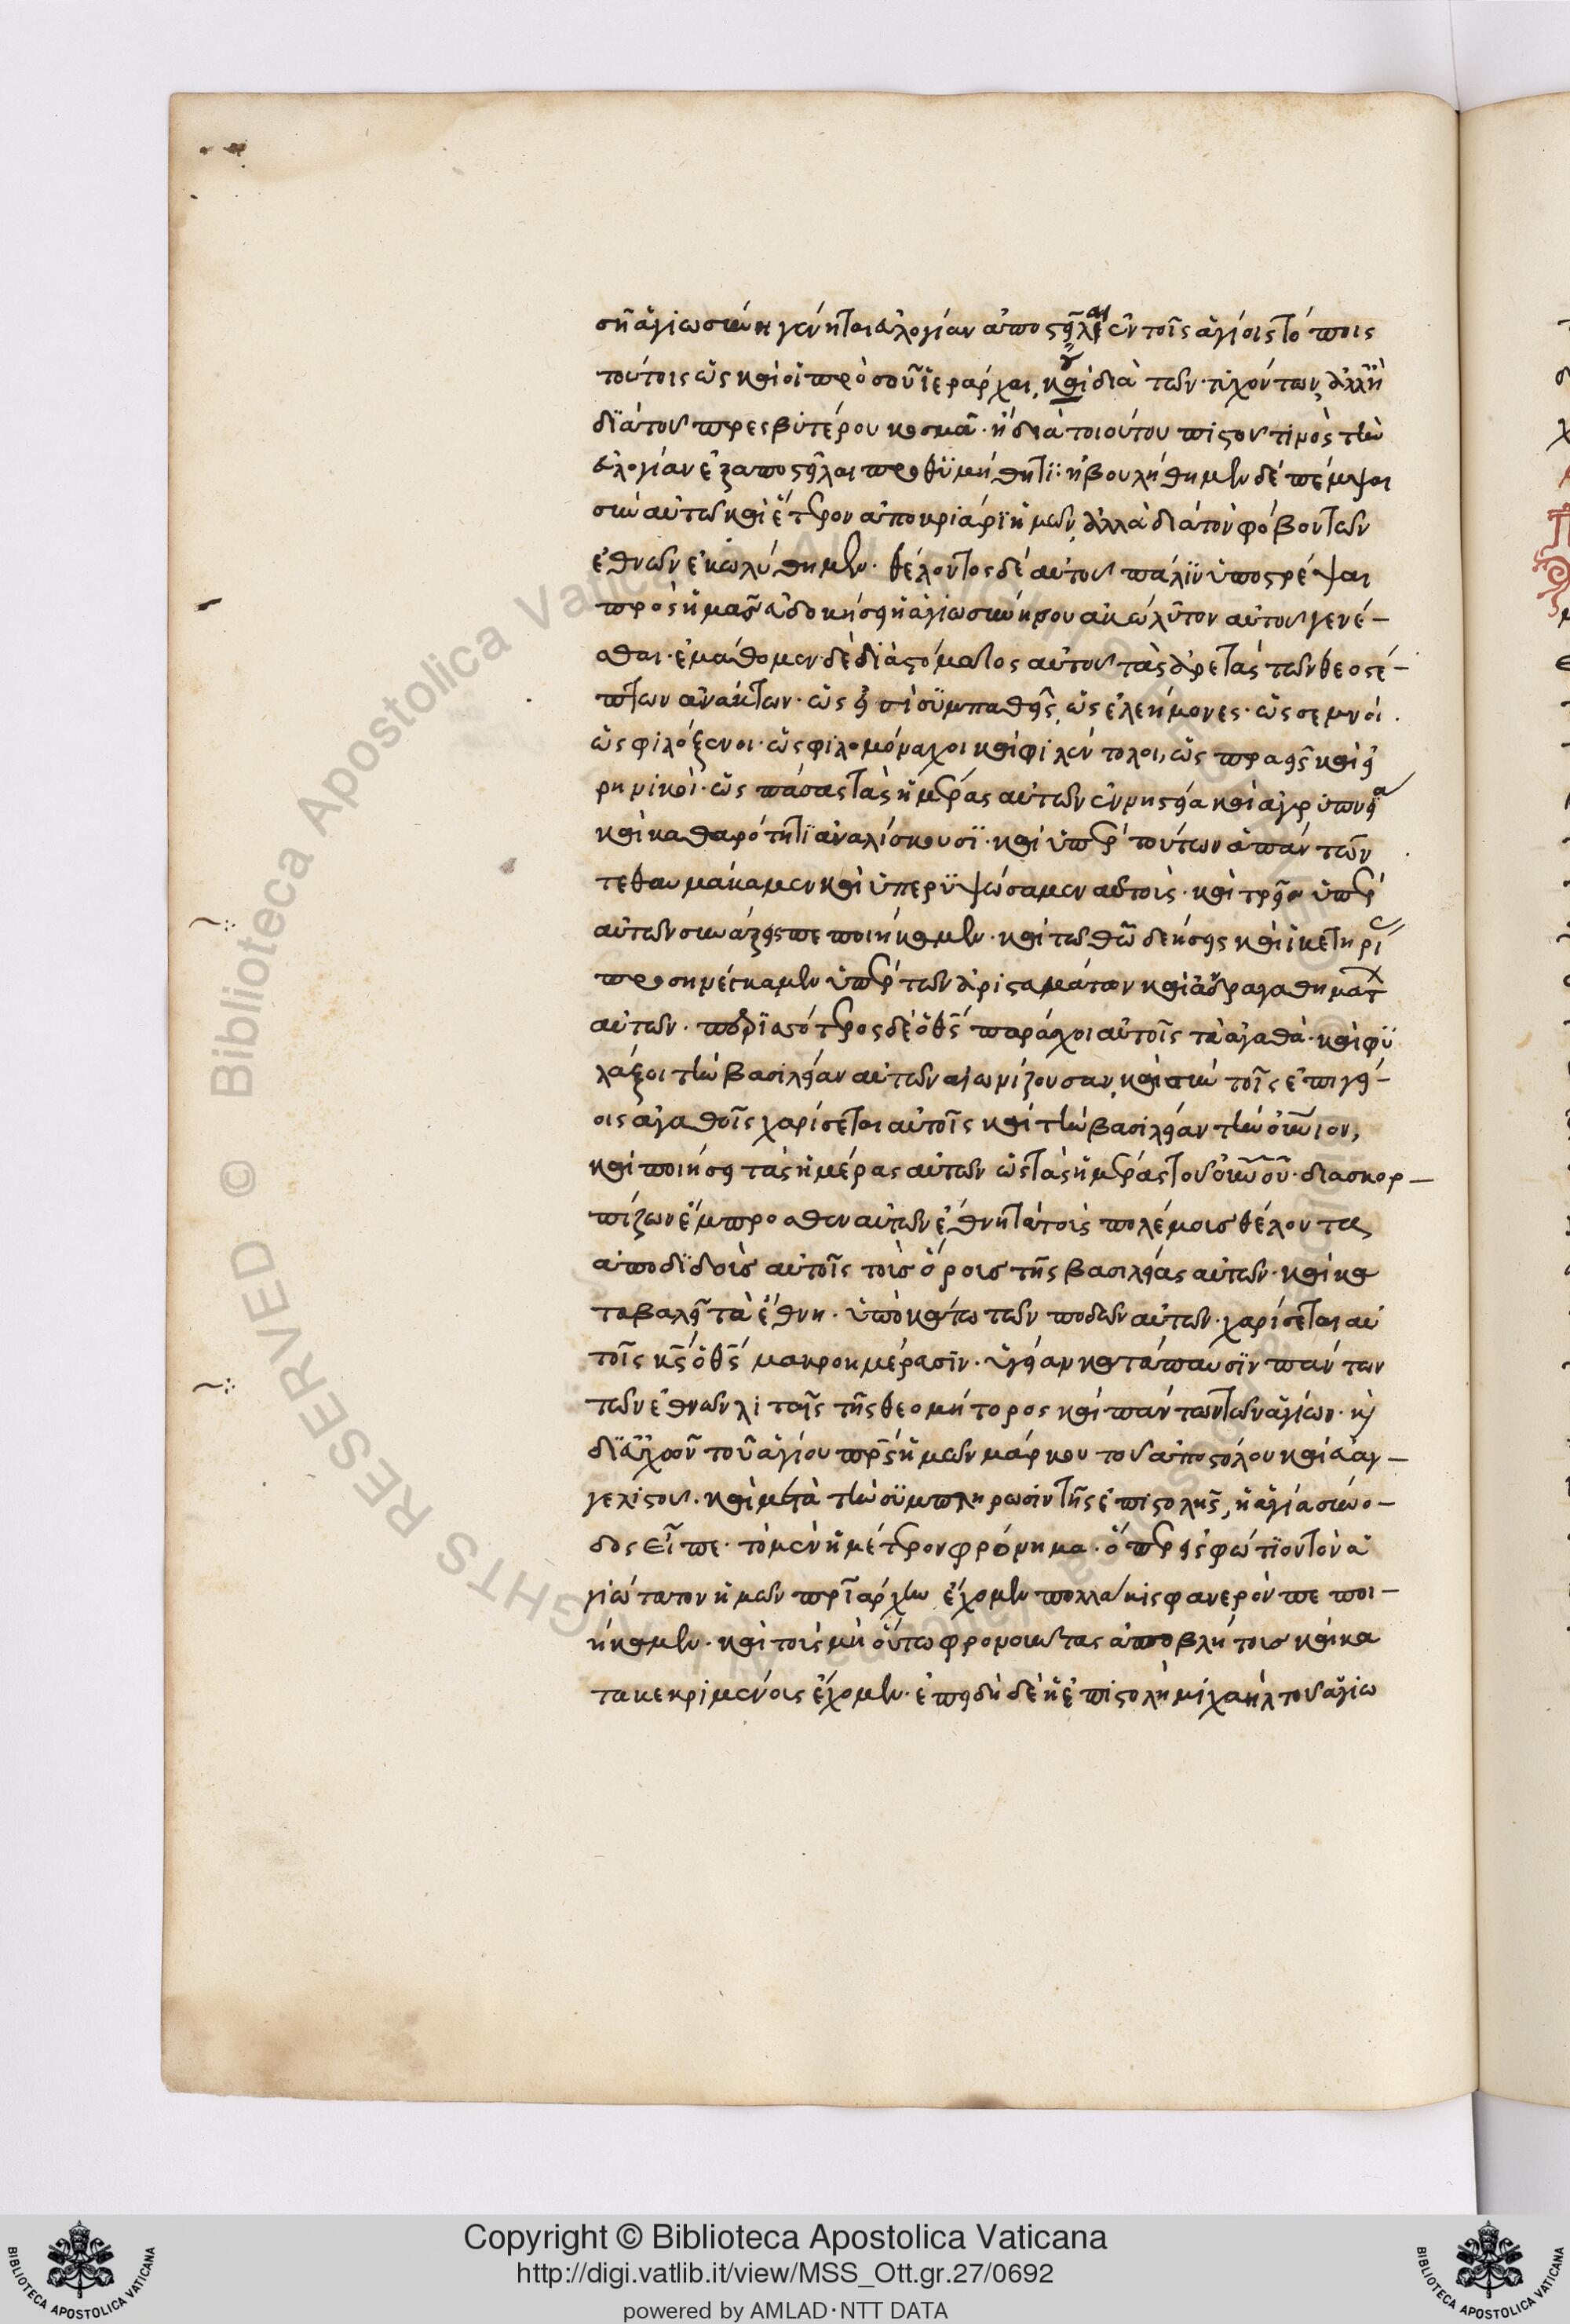 σῆ ἁγιωσύνη γένηται εὐλογίαν ἀποστεῖλαι ἐν τοῖς ἁγίοις τόποις
τούτοις ὡς καὶ οἱ πρὸ σοῦ ἱεράρχαι, καὶ διὰ τῶν τυχόντων, ἀλλ' ἢ
διὰ τοῦ πρεσβυτέρου κοσμᾶ· ἢ διὰ τοιούτου πιστοῦ τινὸς τὴν
εὐλογίαν ἐξαποστεῖλαι προθυμήθητι: ἠβουλήθημεν δὲ πέμψαι
σὺν αὐτῶ καὶ ἕτερον ἀποκρισάρι ἡμῶν, ἀλλὰ διὰ τὸν φόβον τῶν
ἐθνῶν ἐκωλύθημεν· θέλοντος δὲ αὐτοῦ πάλιν ὑποστρέψαι
πρὸς ἡμᾶς εὐδοκήσει ἡ ἁγιωσύνη σου ἀκώλυτον αὐτοῦ γενέ-
σθαι· ἐμάθομεν δὲ διὰ στόματος αὐτοῦ τὰς ἀρετὰς τῶν θεοσέ-
πτων ἀνάκτων· ὡς εἰσὶ συμπαθεῖς, ὡς ἐλεήμονες· ὡς σεμνοί·
ὡς φιλόξενοι· ὡς φιλομόναχοι καὶ φιλέντολοι, ὡς πραεῖς καὶ εἰ
ρηνικοὶ· ὡς πάσας τὰς ἡμέρας αὐτῶν ἐν νηστεία καὶ ἀγρυπνεία
καὶ καθαρότητι ἀναλίσκουσι· καὶ ὑπὲρ τούτων ἁπάντων
τεθαυμάκαμεν καὶ ὑπερυψώσαμεν αὐτοὺς· καὶ τρεῖς ὑπὲρ
αὐτῶν συνάξεις πεποιήκαμεν· καὶ τῶ θεῶ δεήσεις καὶ ἱκετηρί
προσηνέγκαμεν ὑπὲρ τῶν ἀριστευμάτων καὶ ἀνδραγαθημάτ
αὐτῶν· ποῤῥϊασότερος δὲ ὁ θς παράσχοι αὐτοῖς τὰ ἀγαθὰ· καὶ φυ
λάξοι τὴν βασιλείαν αὐτῶν αἰωνίζουσαν, καὶ σὺν τοῖς ἐπιγεί-
οις ἀγαθοῖς χαρίσεται αὐτοῖς καὶ τὴν βασιλείαν τὴν οὐνιον,
καὶ ποιήσει τὰς ἡμέρας αὐτῶν ὡς τὰς ἡμέρας τοῦ οὐνοῦ· διασκορ-
πίζων ἔμπροσθεν αὐτῶν ἔθνη τὰ τοὺς πολέμους θέλοντας
ἀποδιδοὺς αὐτοῖς τοὺς ὅρους τῆς βασιλείας αὐτῶν· καὶ κα
ταβαλεῖ τὰ ἔθνη· ὑποκάτω τῶν ποδῶν αὐτῶν· χαρίσεται αὐ
τοῖς κς ὁ θς μακροημέρασιν· ὑγείαν κατάπαυσιν πάντων
τῶν ἐθνῶν λιταῖς τῆς θεομήτορος καὶ πάντων τῶν ἁγίων· κ
δι' εὐχῶν τοῦ ἁγίου πρς ἡμῶν μάρκου τοῦ ἀποστόλου καὶ εὐαγ-
γελιστοῦ· καὶ μετὰ τὴν συμπλήρωσιν τῆς ἐπιστολῆς, ἡ ἁγία σύνο-
δος εἶπε· τὸ μὲν ἡμέτερον φρόνημα· ὅπερ εἰς φώτιον τὸν ἁ
γιώτατον ἡμῶν πρϊάρχην ἔχομεν πολλάκις φανερὸν πεποι-
ήκαμεν· καὶ τοὺς μὴ οὕτω φρονοῦντας ἀποβλήτους καὶ κα
τακεκριμένους ἔχομεν· ἐπειδὴ δὲ ἡ ἐπιστολὴ μιχαὴλ τοῦ ἁγιω
Copyright © Biblioteca Apostolica Vaticana
http://digi.vatlib.it/view/MSS_Ott.gr.27/0692
powered by AMLAD·NTT DATA